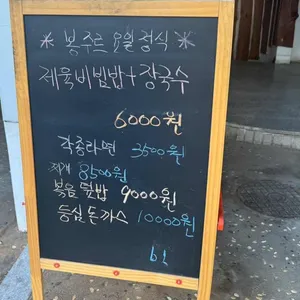 * 봉주르 요일정식 *
제육비빔밥+장국수
6000원
각종라면 3500원
찌개 8500원
볶음덮밥 9000원
등심돈까스 10000원